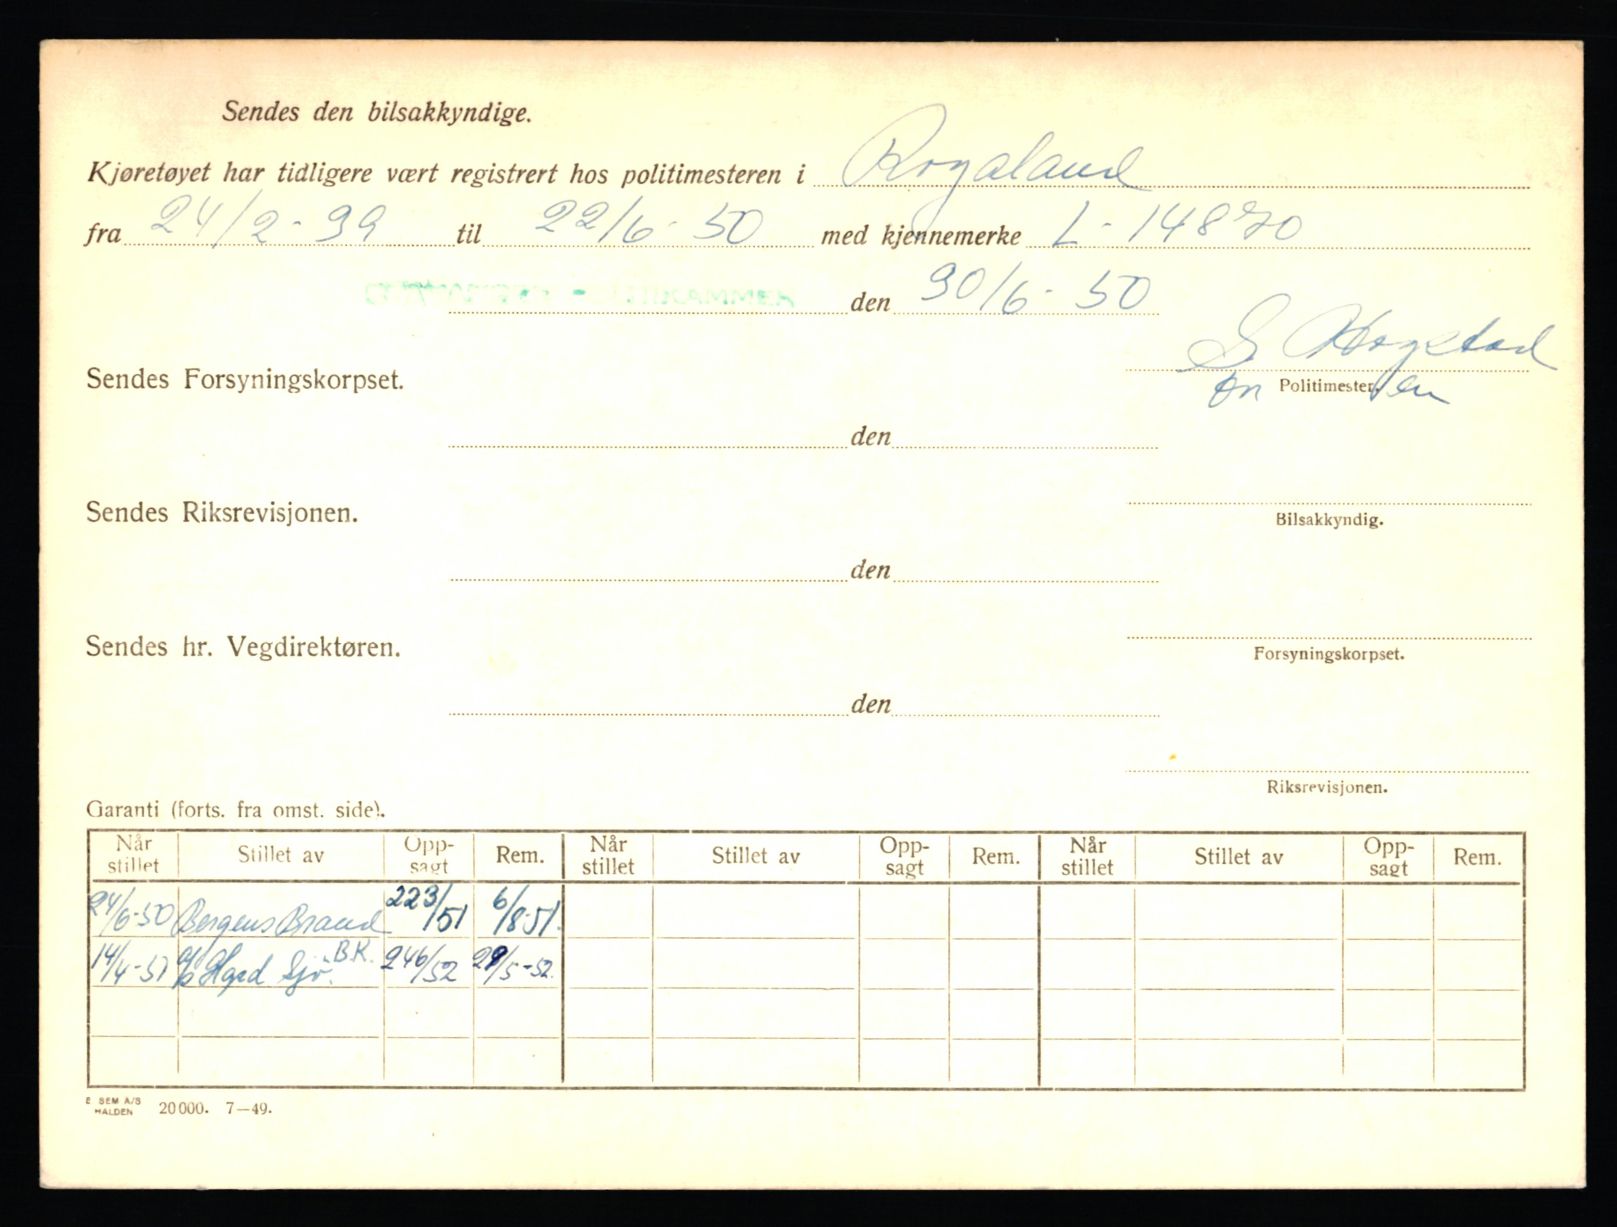 Sendes den bilsakkyndige.
Kjøretøyet har tidligere vært registrert hos politimesteren i Rogaland
fra 24/2-39 til 22/6-50 med kjennemerke L-14870
den 30/6-50
Sendes Forsyningskorpset.
Politimester.
den
Sendes Riksrevisjonen.
Bilsakkyndig.
den
Sendes hr. Vegdirektøren.
Forsyningskorpset.
den
Riksrevisjonen.
Garanti (forts. fra omst. side).
Når stillet Stillet av Opp-sagt Rem. Når stillet Stillet av Opp-sagt Rem. Når stillet Stillet av Opp-sagt Rem.
24/6-50 Bergens Brand 223/51 6/8-51.
14/4-51 B.K. 246/52 29/5-52.
E SEM A/S
HALDEN 20000. 7—49.